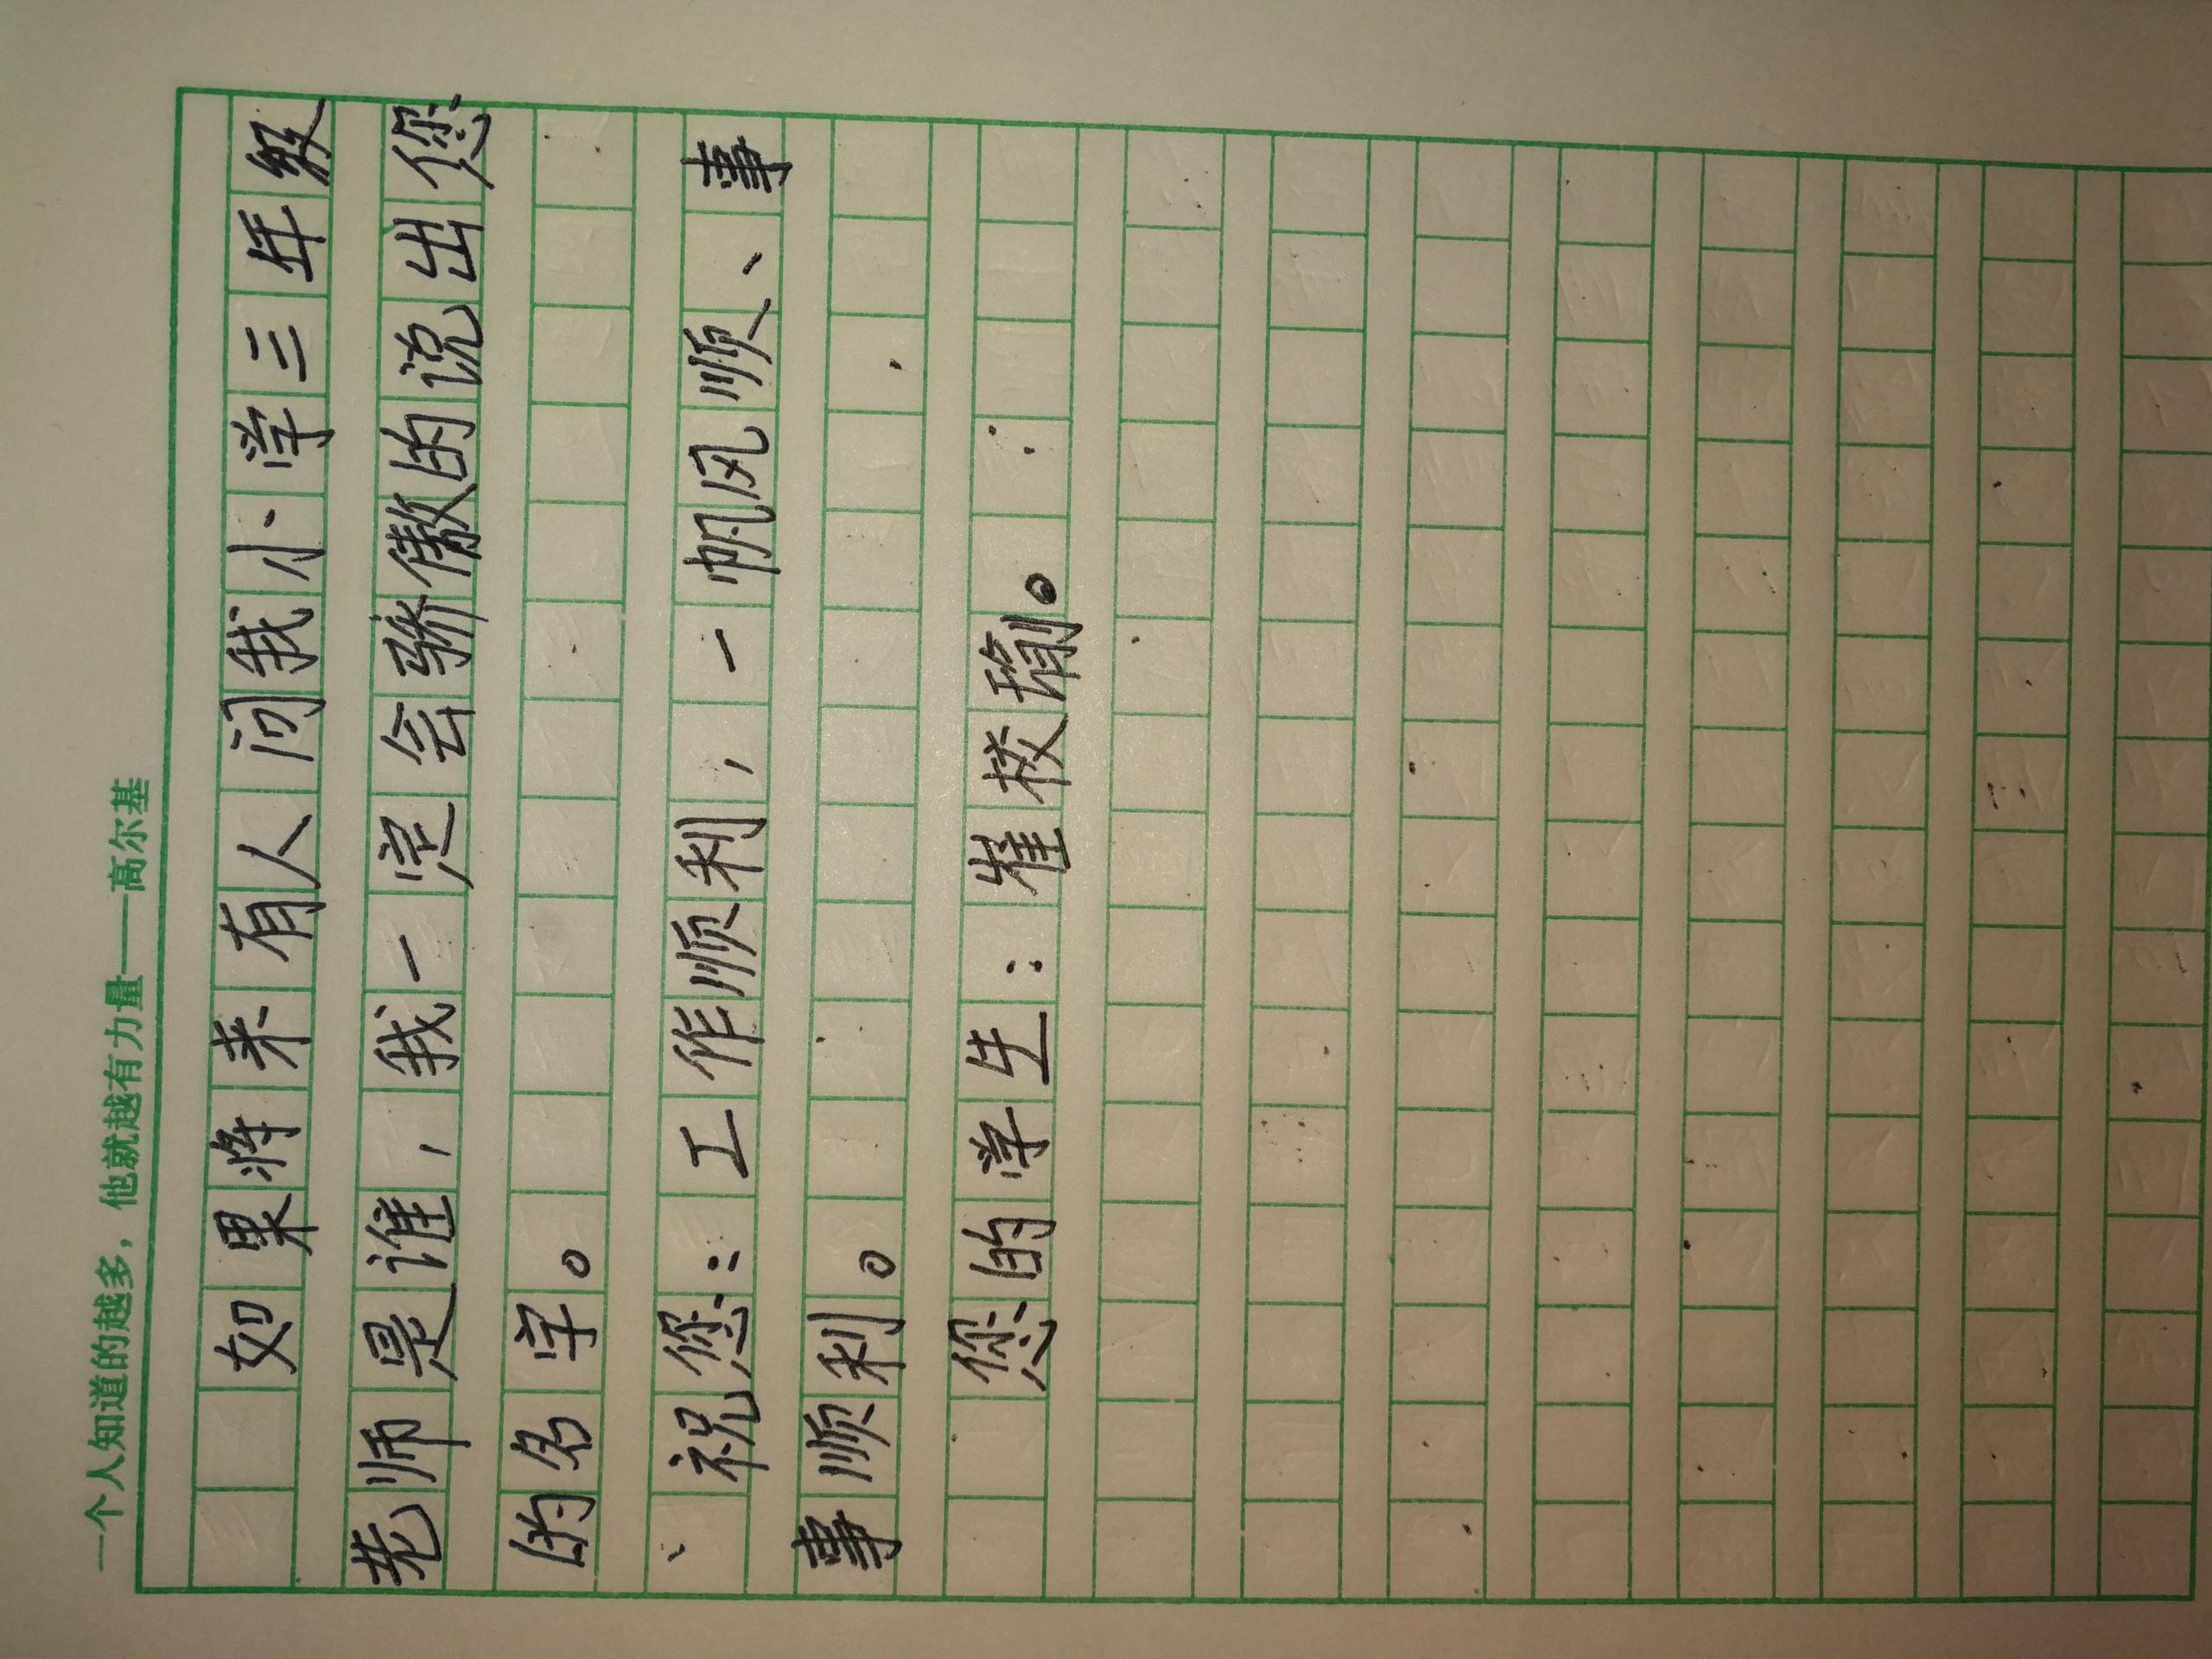 一个人知道的越多，他就越有力量——高尔基
如果将来有人问我小学三年级
老师是谁，我一定会骄傲的说出您
的名字。
祝您：工作顺利，一帆风顺、事
事顺利。
您的学生：崔校瑜。